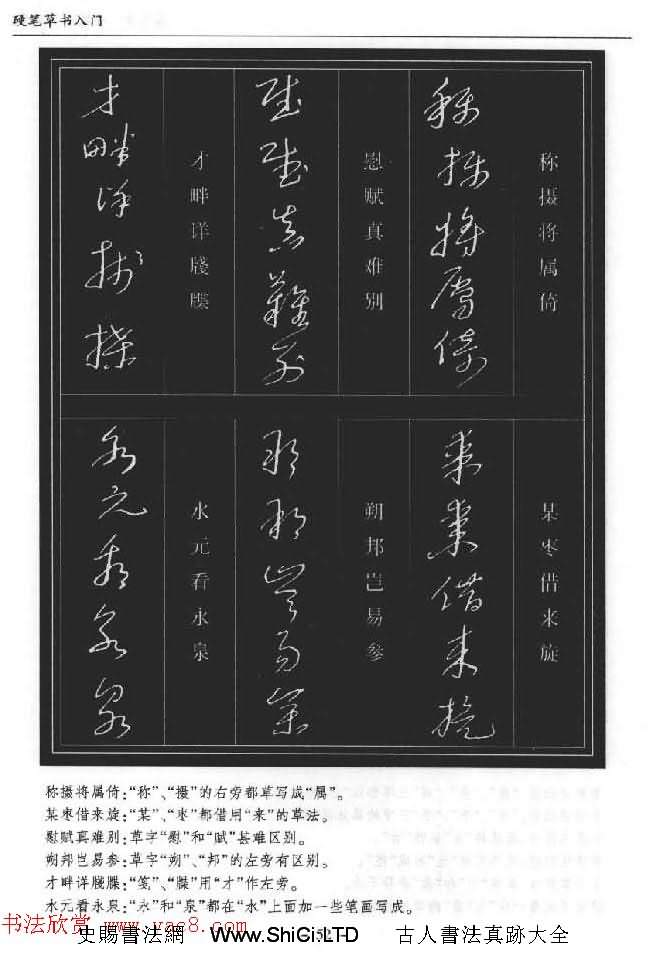 硬笔草书入门
称摄将属倚
慰赋真难别
才畔详牋牒
某枣借来旋
朔邦岂易参
水元看永泉
称摄将属倚：“称”、“摄”的右旁都草写成“属”。
某枣借来旋：“某”、“枣”都借用“来”的草法。
慰赋真难别：草字“慰”和“赋”甚难区别。
朔邦岂易参：草字“朔”、“邦”的左旁有区别。
才畔详牋牒：“笺”、“牒”用“才”作左旁。
水元看永泉：“永”和“泉”都在“水”上面加一些笔画写成。
书法欣赏 www.yac8.com
史賜書法網 Www.ShiCi.LTD 古人書法真跡大全